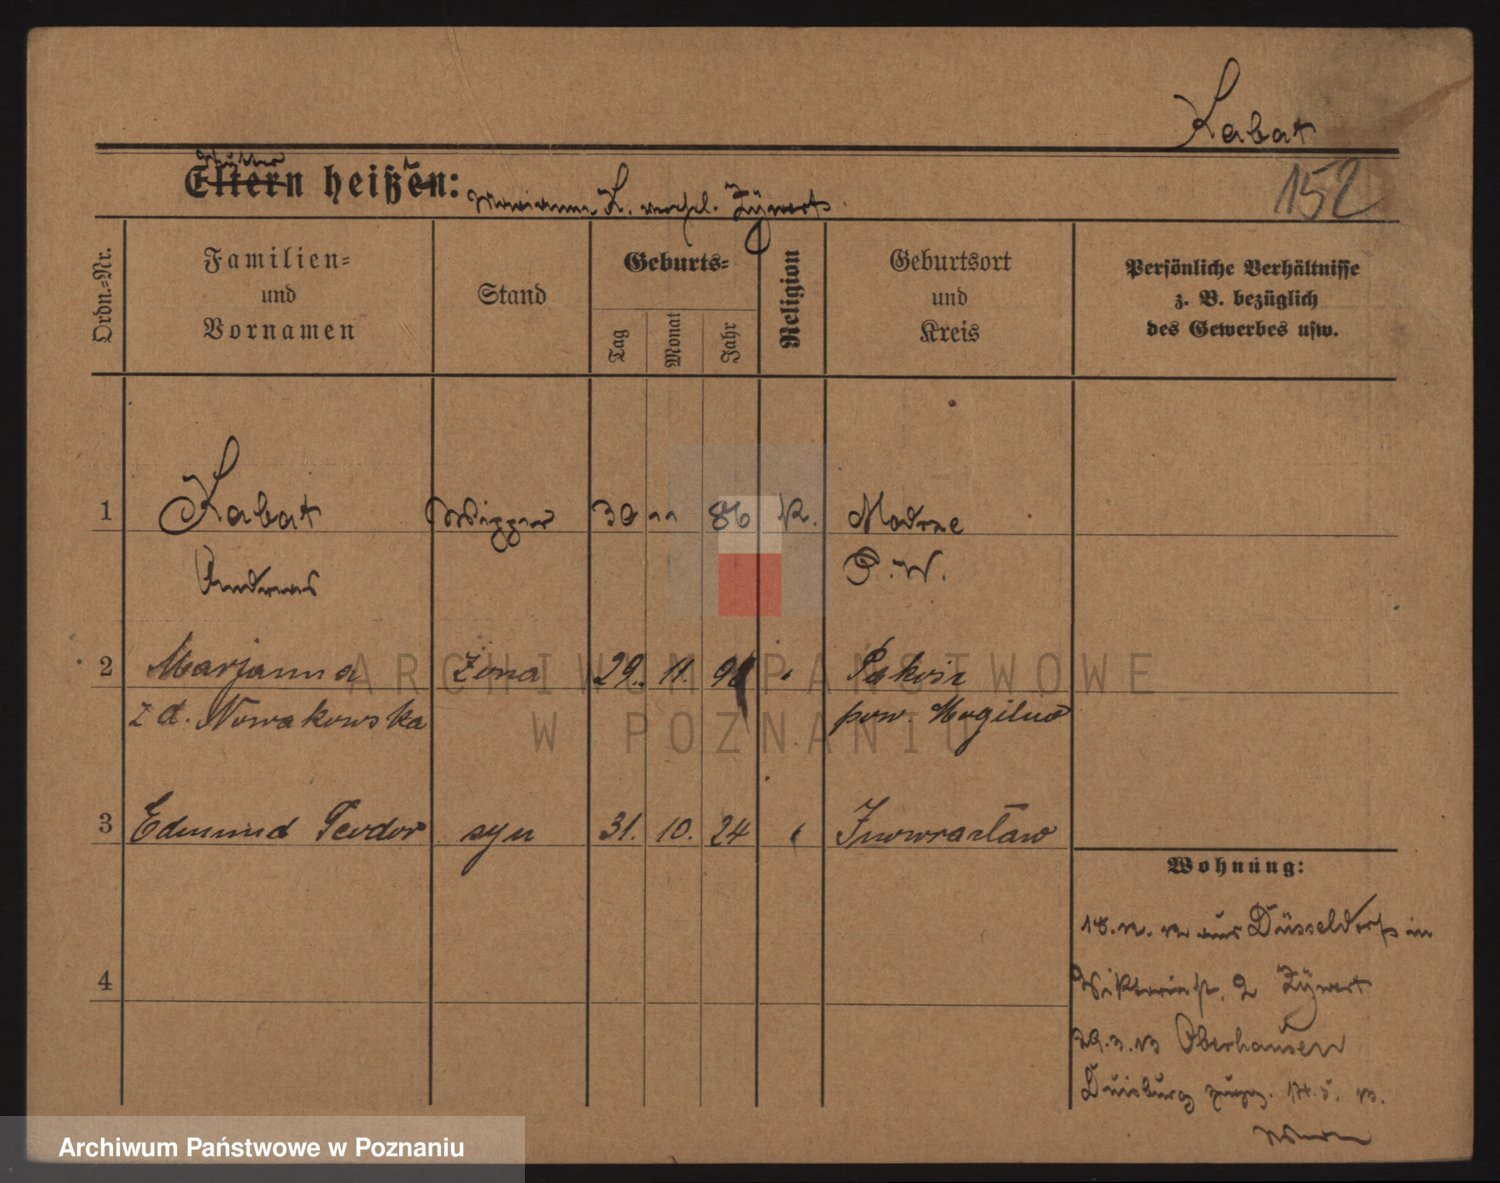 Kabat
152
Mutter
Eltern heißen: Marianna K. verehl. Zÿwert
Ordn.-Nr.
Familien-
und
Vornamen
Stand
Geburts-
Tag
Monat
Jahr
Religion
Geburtsort
und
Kreis
Persönliche Verhältnisse
z. B. bezüglich
des Gewerbes usw.
1 Kabat 30 11 86 K. Modrze
Andreas P. W.
2 Marjanna żona 29. 11. Pakość
z d. Nowakowska pow. Mogilno
3 Edmund Teodor syn 31. 10. 24 Inowrocław
4
Wohnung:
aus Düsseldorf in
2 Zÿwert
29.3.13 Oberhausen
Duisburg 14.5.13.
ARCHIWUM PAŃSTWOWE
W POZNANIU
Archiwum Państwowe w Poznaniu